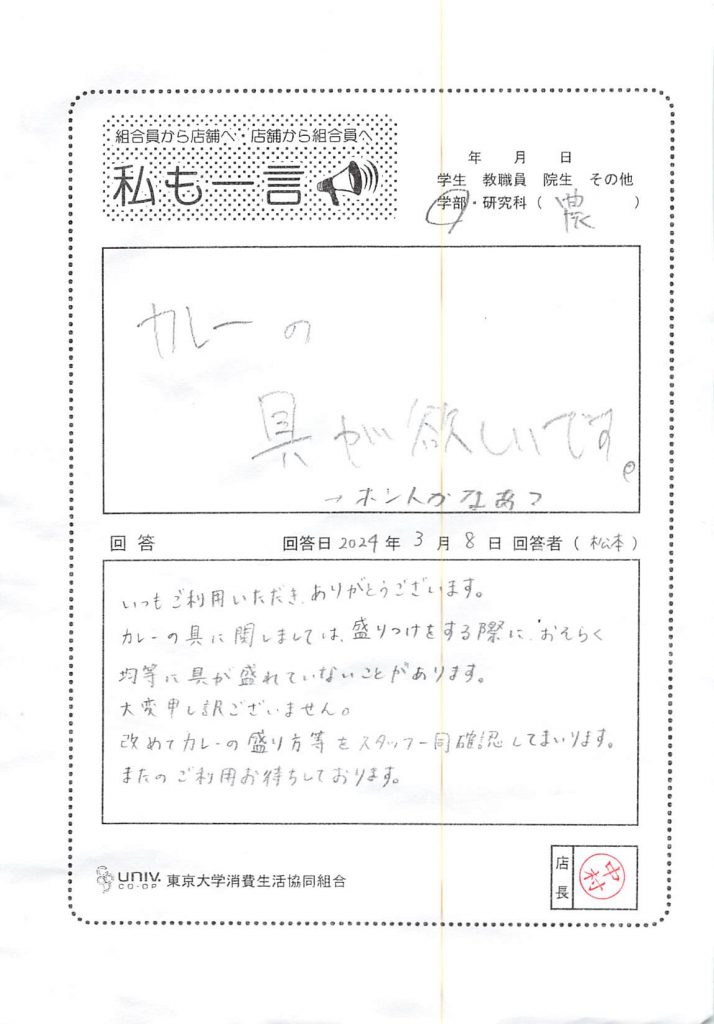 組合員から店舗へ・店舗から組合員へ
私も一言
年 月 日
学生 教職員 院生 その他
学部・研究科( 農 )
カレーの
具が欲しいです。
回答 回答日 2024年 3月 8日 回答者(松本)
いつもご利用いただき、ありがとうございます。
カレーの具に関しましては、盛りつけをする際に、おそらく
均等に具が盛れていないことがあります。
大変申し訳ございません。
改めてカレーの盛り方等をスタッフ一同確認してまいります。
またのご利用お待ちしております。
UNIV. CO-OP 東京大学消費生活協同組合
店長
中村